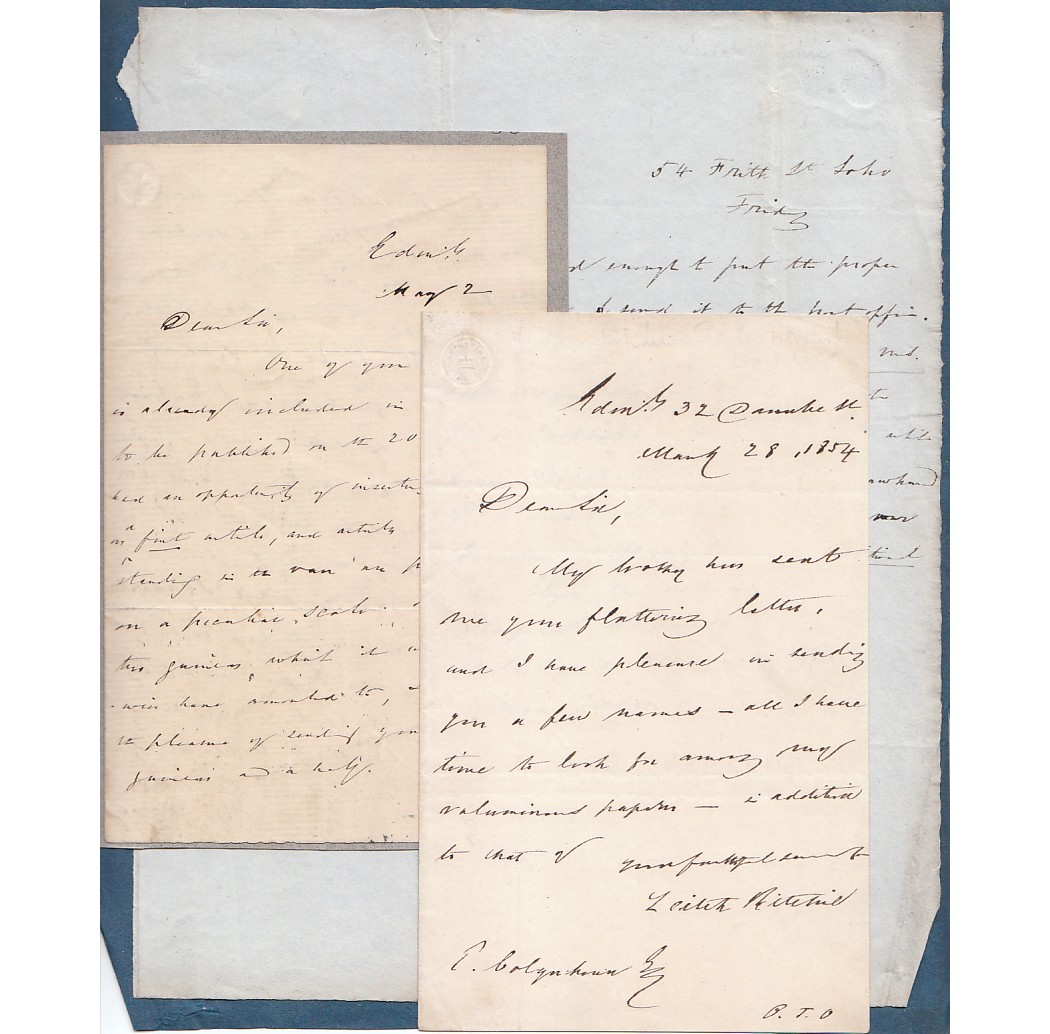 54 Frith St Soho
Friday
enough to put the proper
send it to the post office.
while
Edinbr.
May 2
Dear Sir,
One of your
is already included in
to be published on the 20
had an opportunity of
as first article, and articles
standing in the van are
on a peculiar scale.
guineas what it
have amounted to,
the pleasure of sending you
guineas and a half.
Edinbr 32 Danube St.
March 28, 1854
Dear Sir,
My has sent
me your flattering letter,
and I have pleasure in sending
you a few names — all I have
time to look for among my
voluminous papers — in addition
to that of your faithful servant
Leitch Ritchie
E. Colquhoun Esq
P. T. O